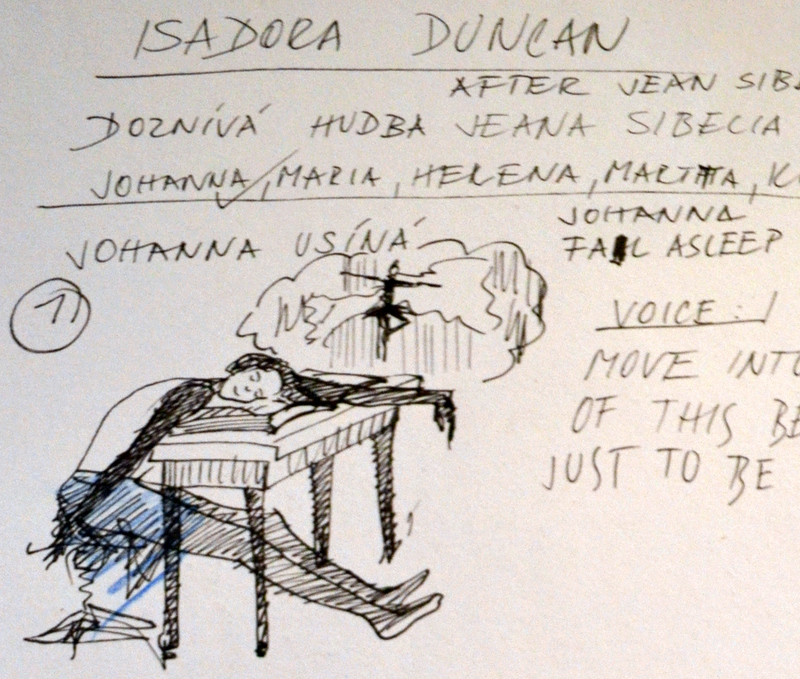 ISADORA DUNCAN
AFTER JEAN
DOZNÍVÁ HUDBA JEANA SIBELIA
JOHANNA, MARIA, HELENA, MARTHA,
JOHANNA USÍNÁ
JOHANNA
FALL ASLEEP
1)
VOICE:
MOVE INTO
OF THIS
JUST TO BE